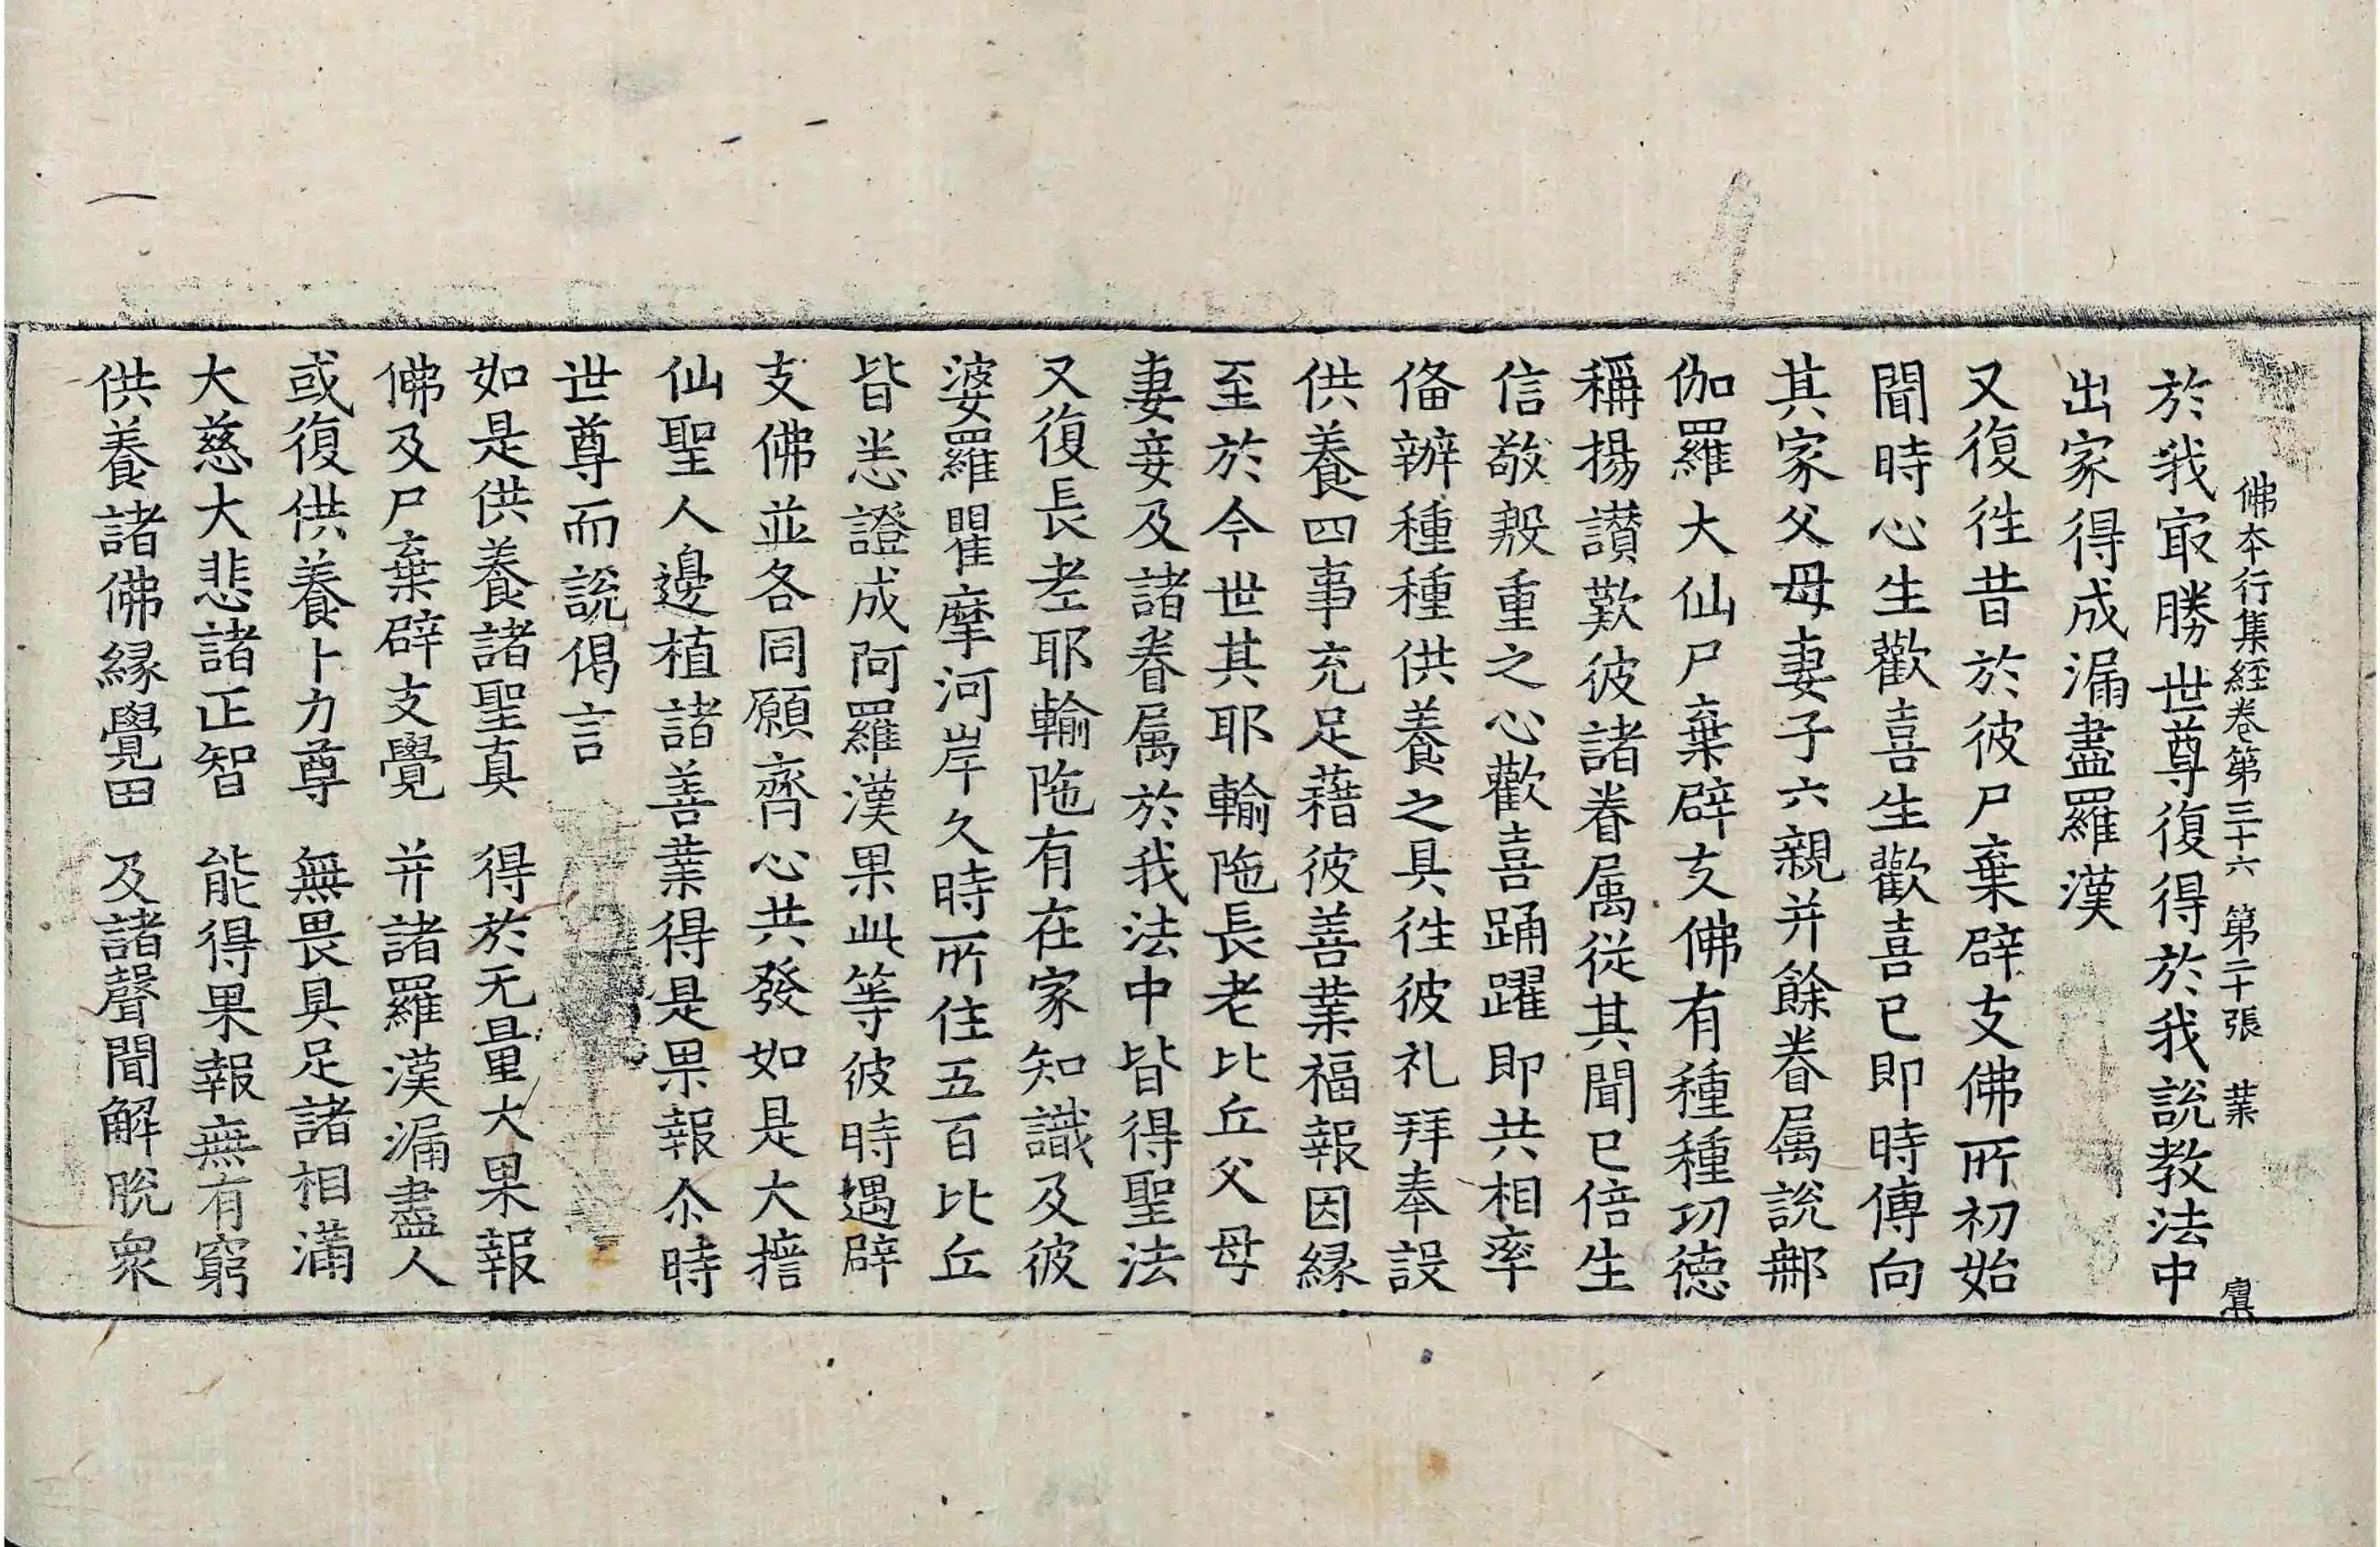 佛本行集經卷第三十六 第二十張 業
於我㝡勝世尊復得於我說教法中
出家得成漏盡羅漢
又復徃昔於彼尸棄辟支佛所初始
聞時心生歡喜生歡喜已即時傳向
其家父母妻子六親并餘眷属說郍
伽羅大仙尸棄辟支佛有種種功德
稱揚讃歎彼諸眷属從其聞已倍生
信敬慇重之心歡喜踊躍即共相率
俻辦種種供養之具徃彼礼拜奉設
供養四事充足藉彼善業福報因縁
至於今世其耶輸陁長老比丘父母
妻妾及諸眷属於我法中皆得聖法
又復長老耶輸陁有在家知識及彼
婆羅瞿摩河岸久時所住五百比丘
皆悉證成阿羅漢果此等彼時遇辟
支佛並各同願齊心共發如是大擔
仙聖人邊植諸善業得是果報尒時
世尊而說偈言
如是供養諸聖真 得於无量大果報
佛及尸棄辟支覺 并諸羅漢漏盡人
或復供養十力尊 無畏具足諸相滿
大慈大悲諸正智 能得果報無有窮
供養諸佛縁覺田 及諸聲聞解脫衆